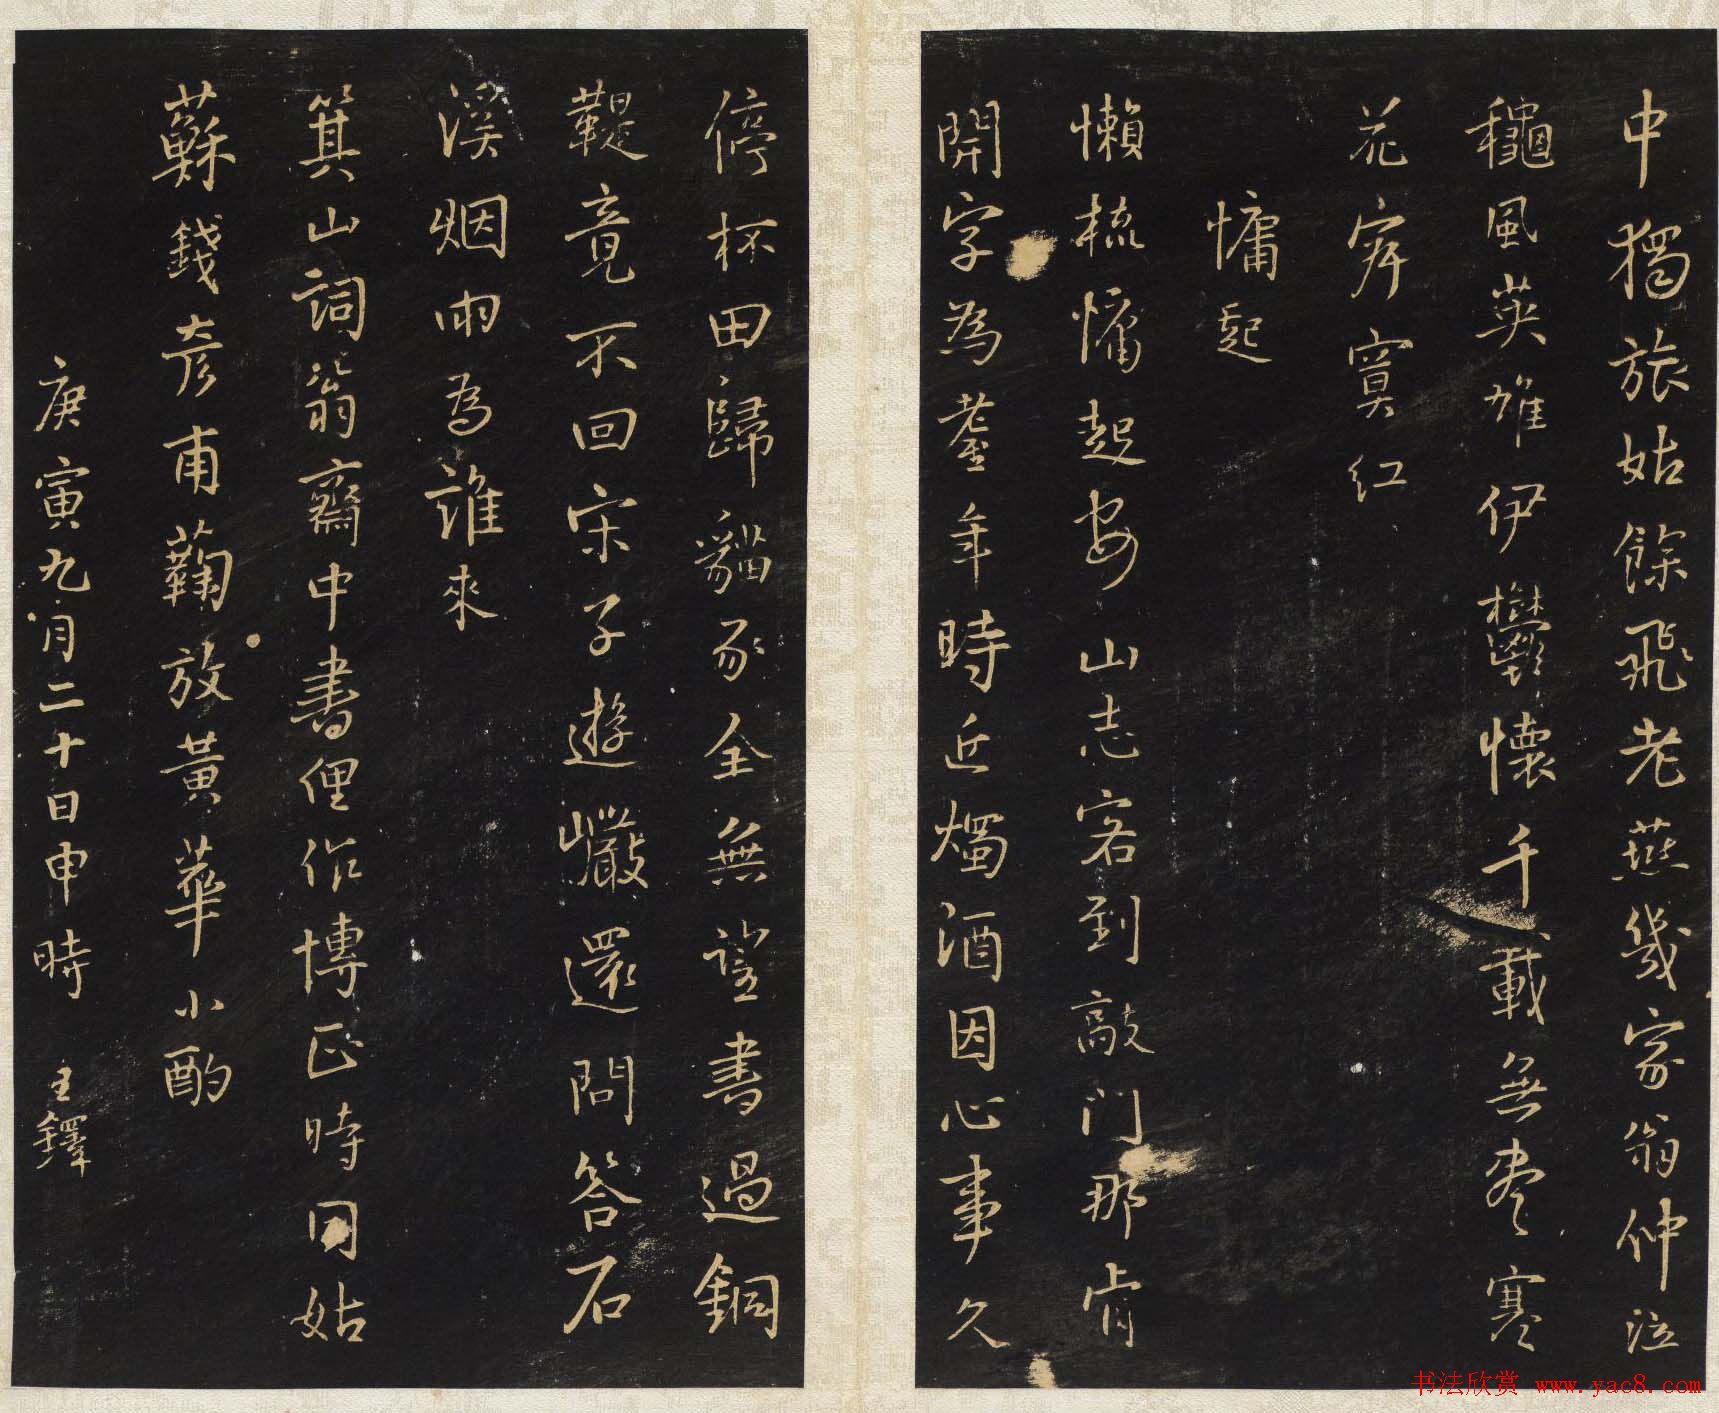 中獨旅姑餘飛老燕幾家翁仲泣
龝風英雄伊鬱懷千載無盡寒
花穽寞红
慵起
懶梳慵起安山志客到敲門那肯
開字為耋年時近燭酒因心事久
停杯田歸貓豕全無證書過銅
鞮竟不回宋子遊巖還問答石
溪烟雨為誰來
箕山詞翁齋中書俚作博正時同姑
蘇錢彥甫蘜放黃華小酌
庚寅九月二十日申時 王鐸
书法欣赏 www.yac8.com